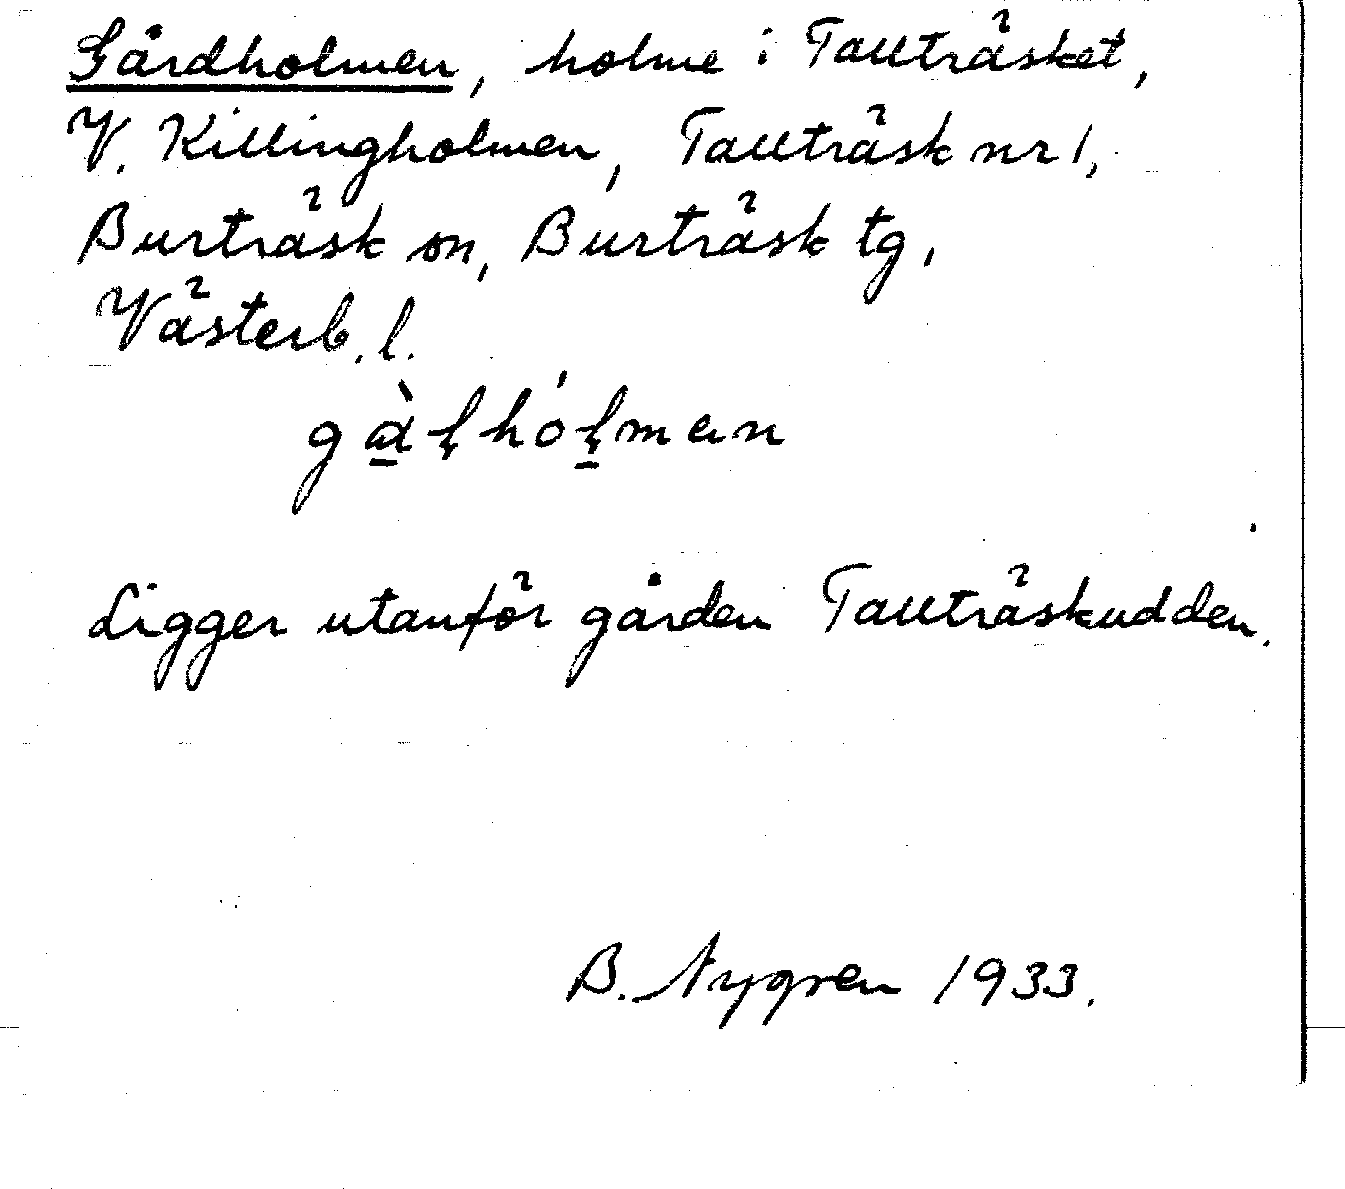 Gårdholmen, holme i Tallträsket,
V. Killingholmen, Tallträsk nr 1,
Burträsk sn, Burträsk tg,
Västerb. l.
Ligger utanför gården Tallträskudden.
B. Nygren 1933.